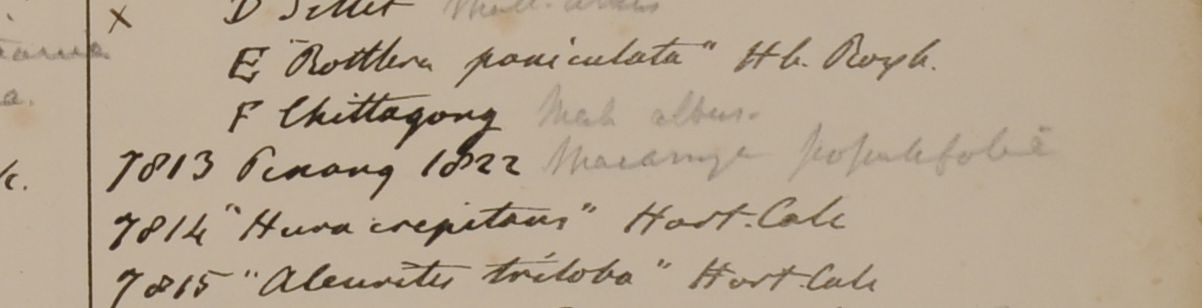 x D Sillet Mall. albus
E "Rottlera paniculata" Hb. Roxb.
F Chittagong Mall albus.
7813 Penang 1822 Macaranga populifolia
7814 "Hura crepitans" Hort. Calc
7815 "Aleurites triloba" Hort Calc